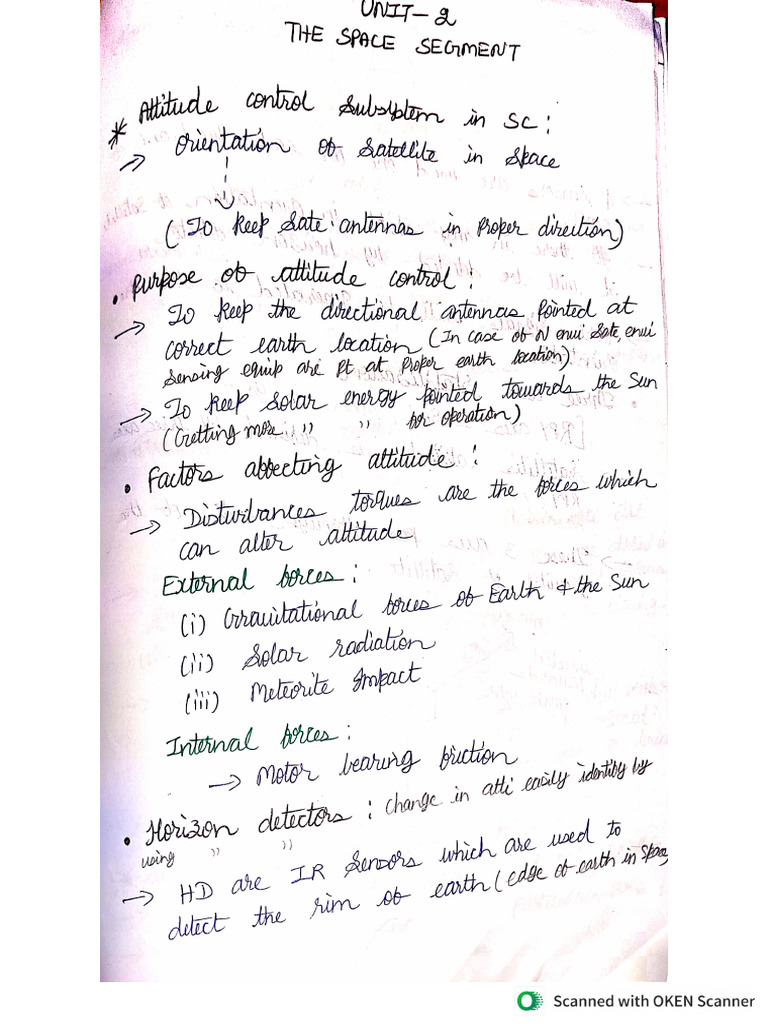 UNIT-2
THE SPACE SEGMENT
* Attitude control Subsystem in SC:
→ Orientation of Satellite in Space
(To keep Sate. antennas in proper direction)
• Purpose of attitude control:
→ To keep the directional antennas pointed at
correct earth location (In case of N envi Sate, envi
sensing equip are pt at proper earth location).
→ To keep solar energy pointed towards the Sun
(Getting more " " for operation)
• Factors affecting attitude:
→ Disturbances torques are the forces which
can alter attitude
External forces:
(i) Gravitational forces of Earth & the Sun
(ii) Solar radiation
(iii) Meteorite Impact
Internal forces:
→ Motor bearing friction
• Horizon detectors: change in atti easily identify by
using " "
→ HD are IR Sensors which are used to
detect the rim of earth (edge of earth in space
Scanned with OKEN Scanner